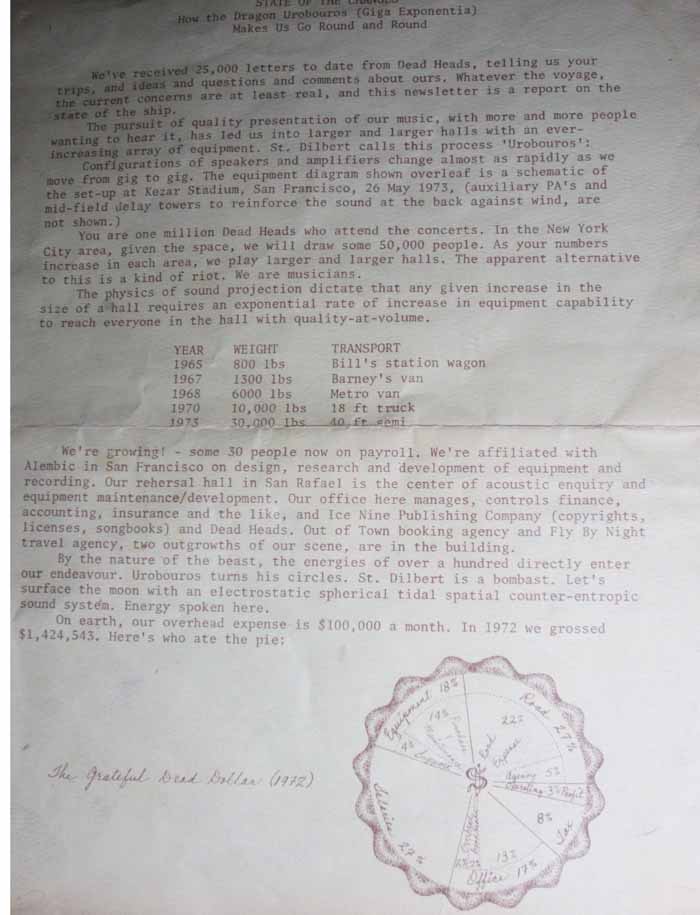 STATE OF THE CHANGES
How the Dragon Urobouros (Giga Exponentia)
Makes Us Go Round and Round
We've received 25,000 letters to date from Dead Heads, telling us your
trips, and ideas and questions and comments about ours. Whatever the voyage,
the current concerns are at least real, and this newsletter is a report on the
state of the ship.
The pursuit of quality presentation of our music, with more and more people
wanting to hear it, has led us into larger and larger halls with an ever-
increasing array of equipment. St. Dilbert calls this process 'Urobouros':
Configurations of speakers and amplifiers change almost as rapidly as we
move from gig to gig. The equipment diagram shown overleaf is a schematic of
the set-up at Kezar Stadium, San Francisco, 26 May 1973, (auxiliary PA's and
mid-field delay towers to reinforce the sound at the back against wind, are
not shown.)
You are one million Dead Heads who attend the concerts. In the New York
City area, given the space, we will draw some 50,000 people. As your numbers
increase in each area, we play larger and larger halls. The apparent alternative
to this is a kind of riot. We are musicians.
The physics of sound projection dictate that any given increase in the
size of a hall requires an exponential rate of increase in equipment capability
to reach everyone in the hall with quality-at-volume.
YEAR WEIGHT TRANSPORT
1965 800 lbs Bill's station wagon
1967 1300 lbs Barney's van
1968 6000 lbs Metro van
1970 10,000 lbs 18 ft truck
1973 30,000 lbs 40 ft semi
We're growing! - some 30 people now on payroll. We're affiliated with
Alembic in San Francisco on design, research and development of equipment and
recording. Our rehersal hall in San Rafael is the center of acoustic enquiry and
equipment maintenance/development. Our office here manages, controls finance,
accounting, insurance and the like, and Ice Nine Publishing Company (copyrights,
licenses, songbooks) and Dead Heads. Out of Town booking agency and Fly By Night
travel agency, two outgrowths of our scene, are in the building.
By the nature of the beast, the energies of over a hundred directly enter
our endeavour. Urobouros turns his circles. St. Dilbert is a bombast. Let's
surface the moon with an electrostatic spherical tidal spatial counter-entropic
sound system. Energy spoken here.
On earth, our overhead expense is $100,000 a month. In 1972 we grossed
$1,424,543. Here's who ate the pie:
Equipment 18%
Road 27%
14% Purchase
22%
Road Expense
4%
Agency 5%
Operating 3% Profit
$
The Grateful Dead Dollar (1972)
Salaries 27%
8%
Tax
2% 2% 13%
Office 17%